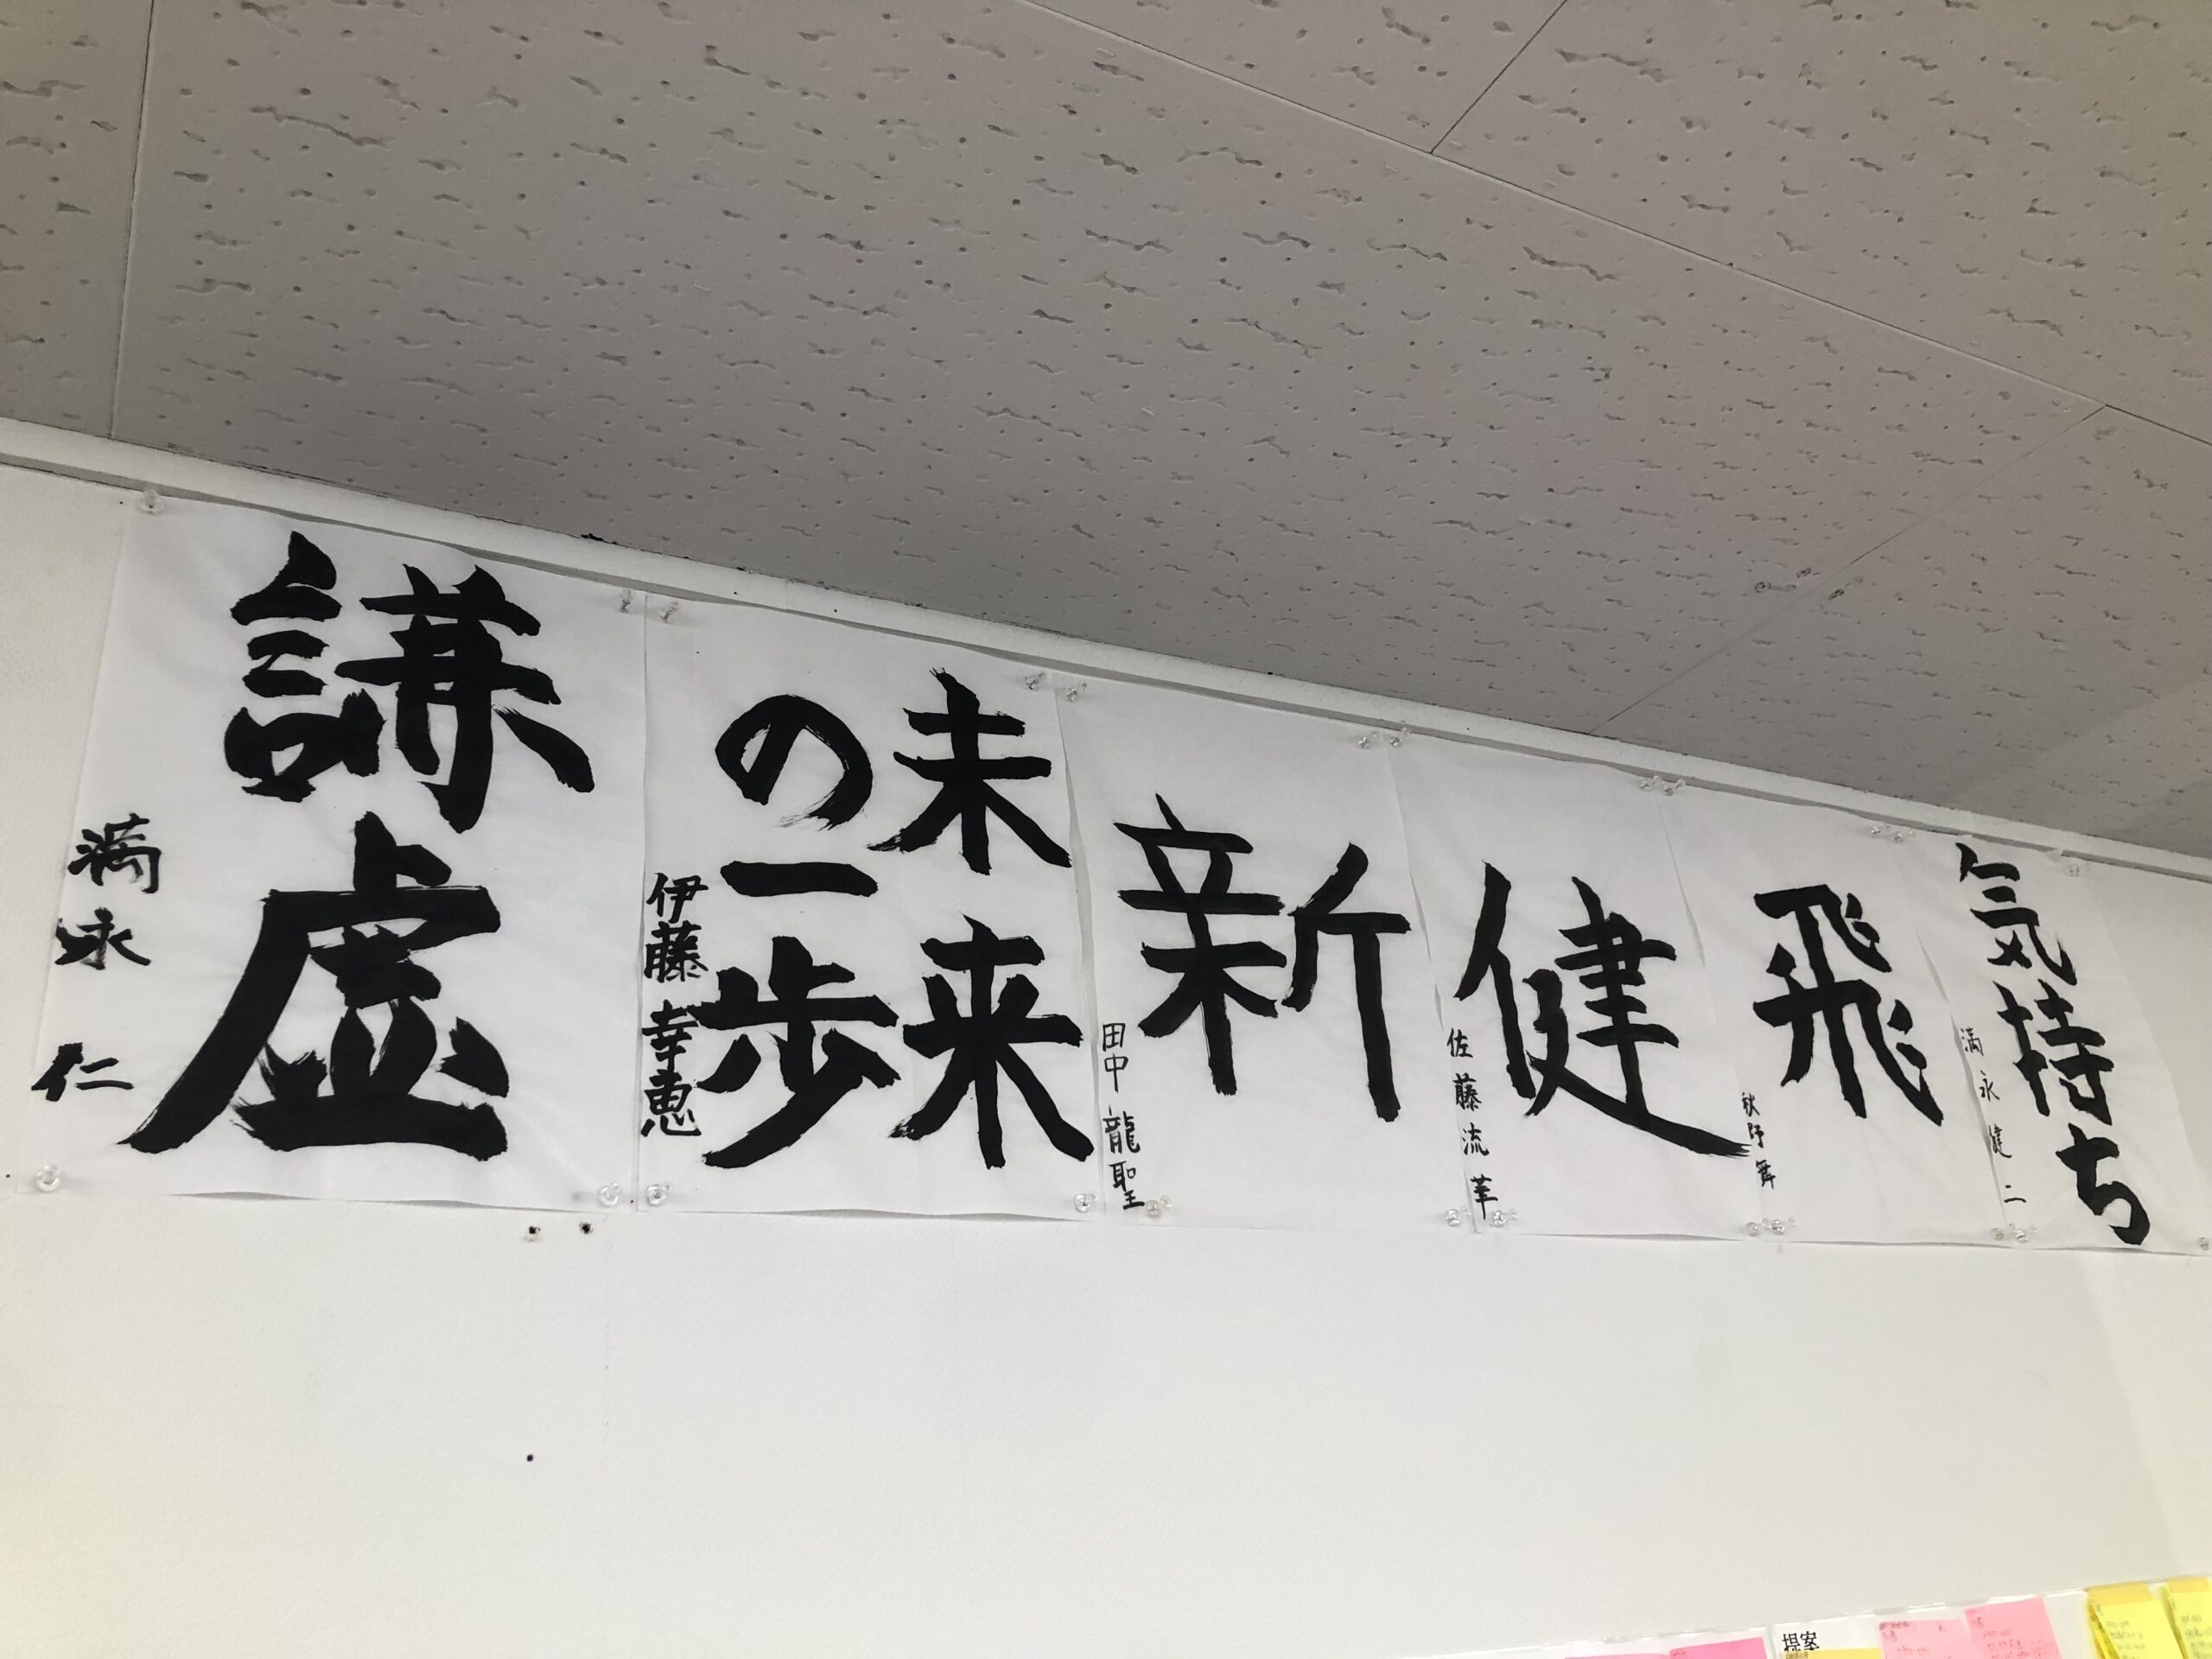 気持ち
満永健二
飛
秋野舞
健
佐藤流華
新
田中龍聖
未来
の一歩
伊藤幸恵
謙虚
満永仁
提案